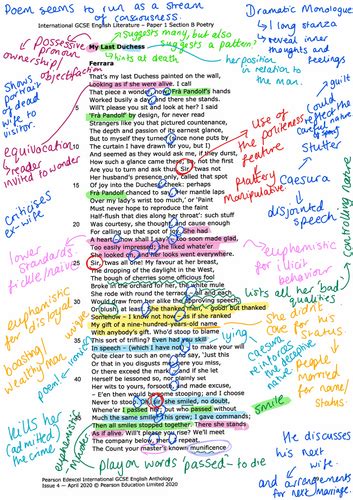 Poem seems to run as a stream of consciousness.
International GCSE English Literature – Paper 1 Section B Poetry
Dramatic Monologue
1 long stanza
reveal inner thoughts and feelings
Suggests many, but also suggests a pattern?
hints at death
her position in relation to the man.
Possessive pronoun ownership! objectifaction
My Last Duchess
Ferrara
That's my last Duchess painted on the wall,
Looking as if she were alive. I call
That piece a wonder, now: Frà Pandolf's hands
Worked busily a day, and there she stands.
5 Will't please you sit and look at her? I said
'Frà Pandolf' by design, for never read
Strangers like you that pictured countenance,
The depth and passion of its earnest glance,
But to myself they turned (since none puts by
10 The curtain I have drawn for you, but I)
And seemed as they would ask me, if they durst,
How such a glance came there; so, not the first
Are you to turn and ask thus. Sir, 'twas not
Her husband's presence only, called that spot
15 Of joy into the Duchess' cheek: perhaps
Frà Pandolf chanced to say, 'Her mantle laps
Over my lady's wrist too much,' or 'Paint
Must never hope to reproduce the faint
Half-flush that dies along her throat': such stuff
20 Was courtesy, she thought, and cause enough
For calling up that spot of joy. She had
A heart – how shall I say? – too soon made glad,
Too easily impressed; she liked whate'er
She looked on, and her looks went everywhere.
25 Sir, 'twas all one! My favour at her breast,
The dropping of the daylight in the West,
The bough of cherries some officious fool
Broke in the orchard for her, the white mule
She rode with round the terrace – all and each
30 Would draw from her alike the approving speech,
Or blush, at least. She thanked men, – good! but thanked
Somehow – I know not how – as if she ranked
My gift of a nine-hundred-years-old name
With anybody's gift. Who'd stoop to blame
35 This sort of trifling? Even had you skill
In speech – (which I have not) – to make your will
Quite clear to such an one, and say, 'Just this
Or that in you disgusts me; here you miss,
Or there exceed the mark' – and if she let
40 Herself be lessoned so, nor plainly set
Her wits to yours, forsooth, and made excuse,
– E'en then would be some stooping; and I choose
Never to stoop. Oh sir, she smiled, no doubt,
Whene'er I passed her; but who passed without
45 Much the same smile? This grew; I gave commands;
Then all smiles stopped together. There she stands
As if alive. Will't please you rise? We'll meet
The company below, then. I repeat,
The Count your master's known munificence
shows portrait of dead wife to visitor.
equivocation
reader invited to wonder
criticises ex-wife
low standards
fickle/naive
euphemistic for disloyal
boasting/ wealthy man
Kills her (admitted) the crime
euphemism
play on words 'passed' - to die
guilt
Could reflect the careful nature of tone
stutter
Use of the politeness feature.
flattery
Manipulative.
Caesura
disjointed speech
controlling nature
euphemistic for illicit behaviour
lists all her 'bad' qualities
She didn't care for his status
people married for name/ status.
lying
caesura reinforces the deceptive nature
smile
He discusses his next wife
and arrangements for next marriage
Pearson Edexcel International GCSE English Anthology
Issue 4 – April 2020 © Pearson Education Limited 2020